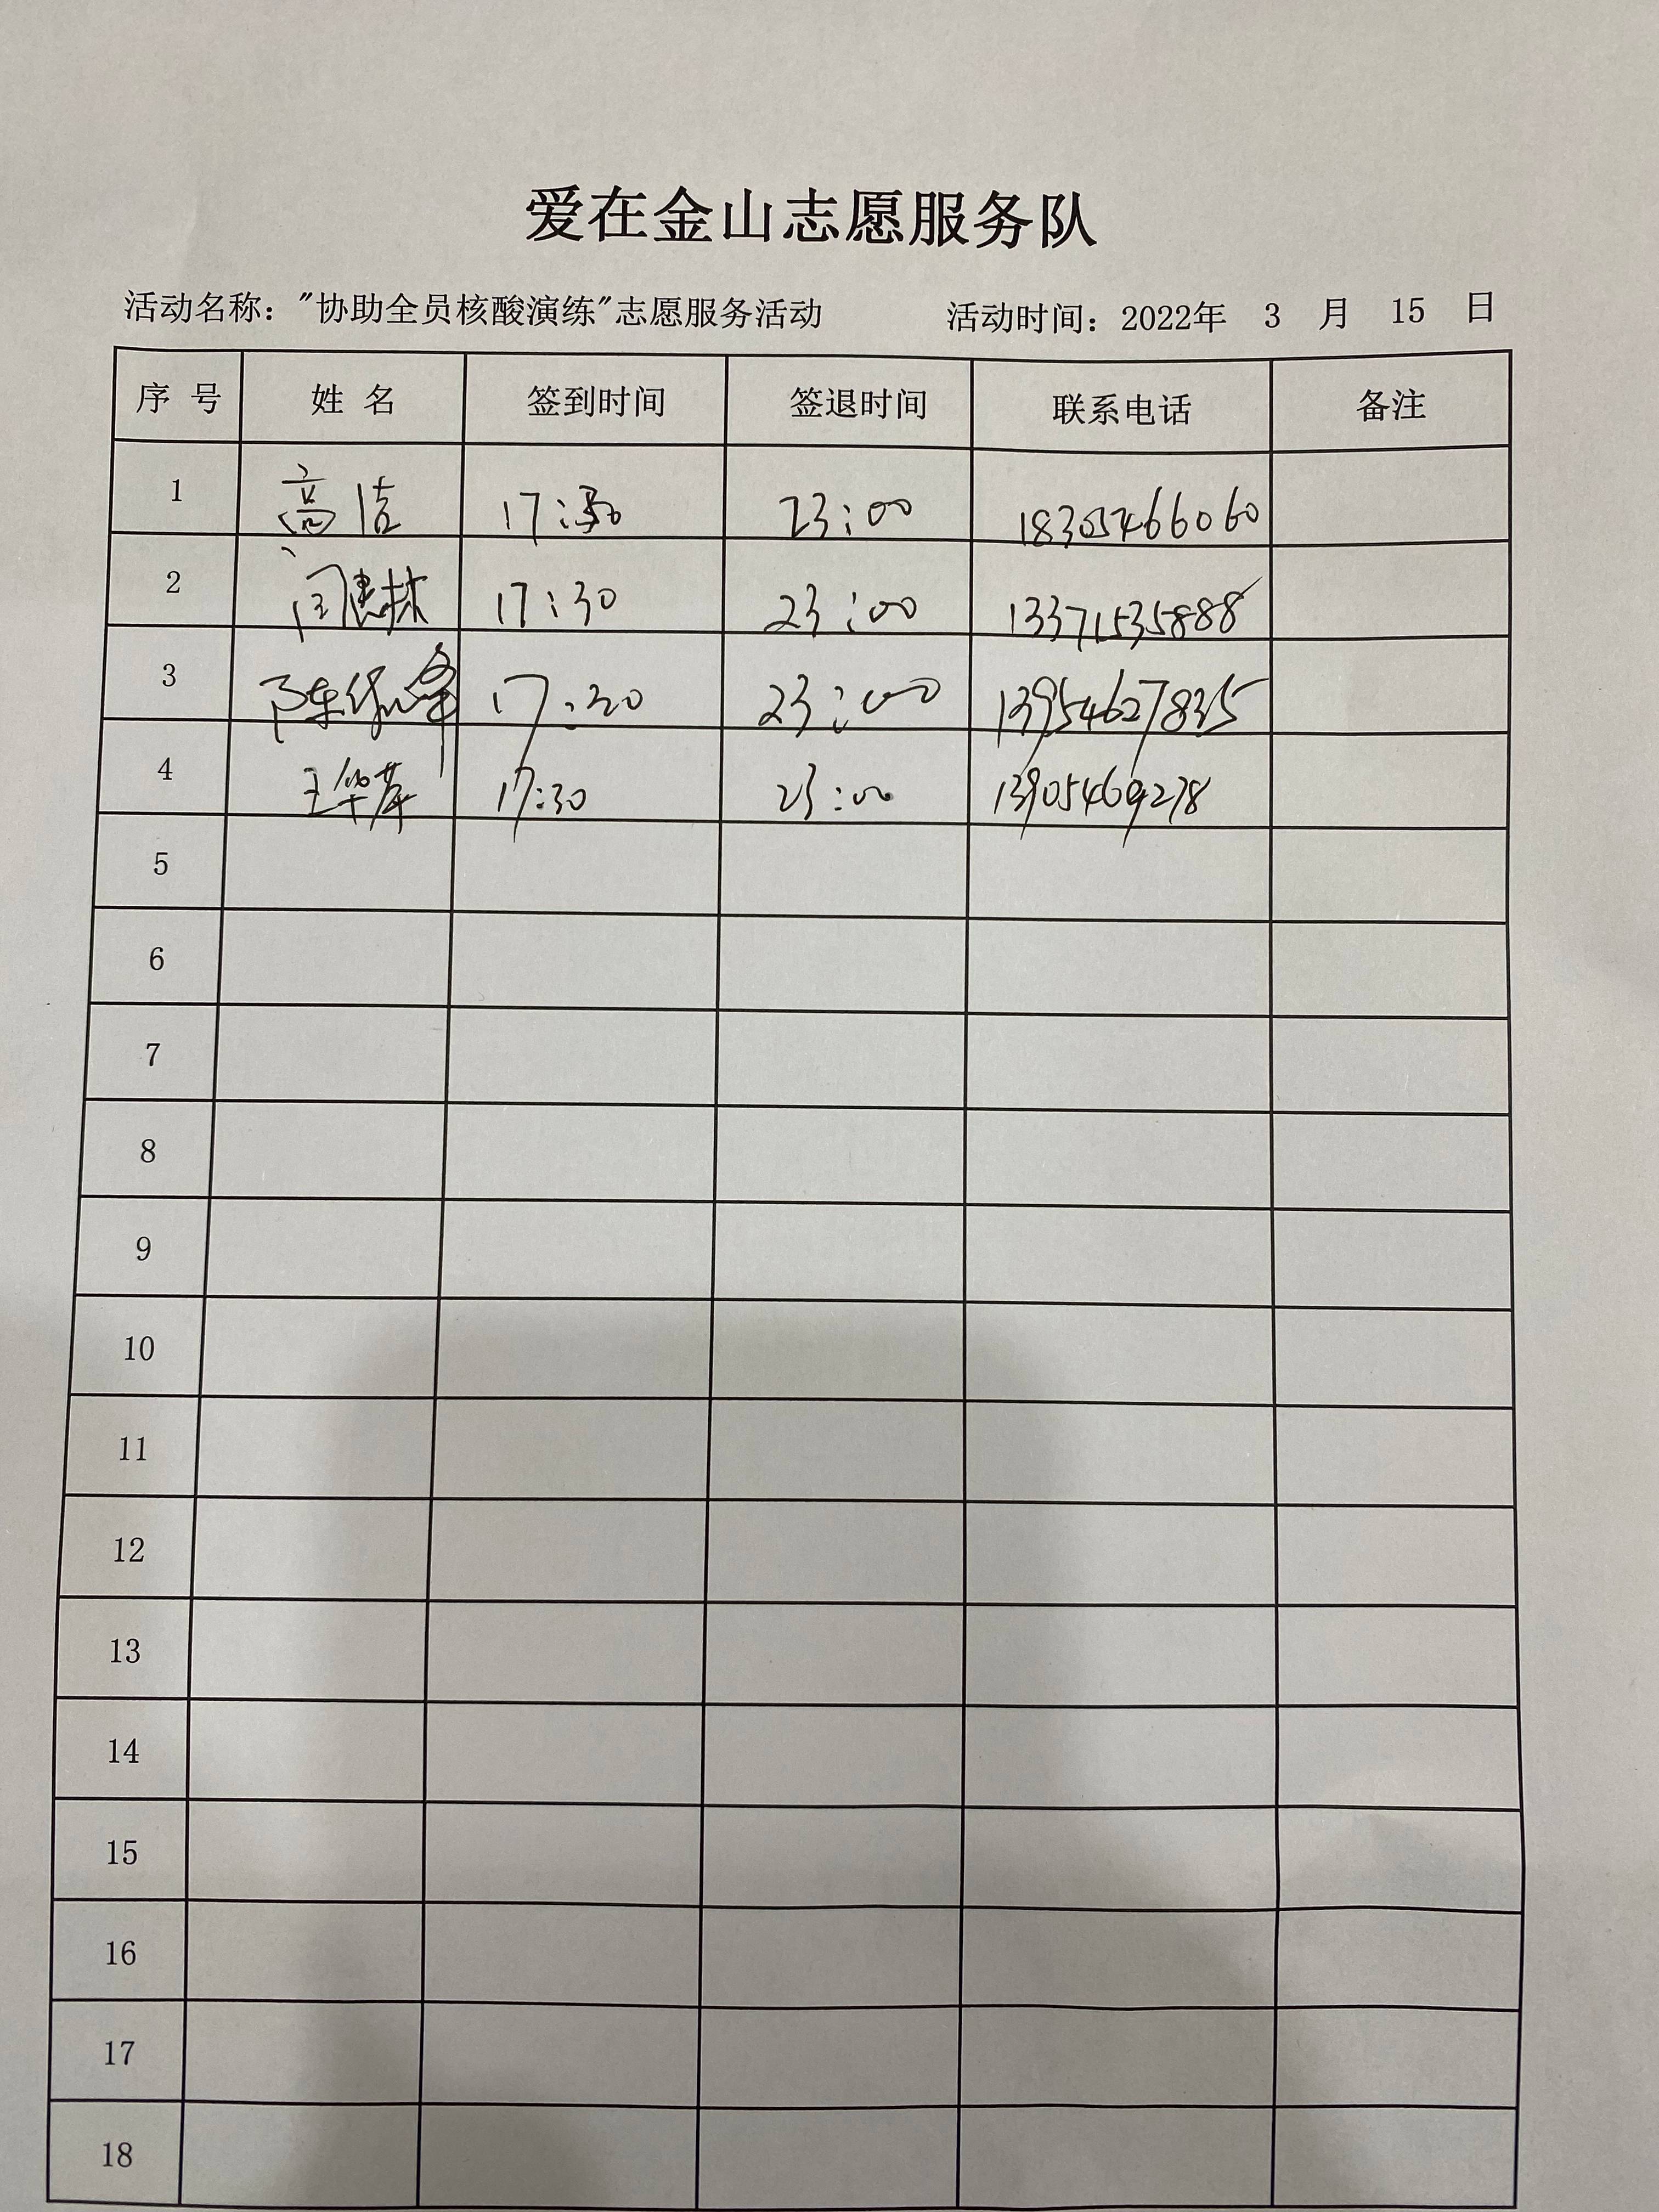 爱在金山志愿服务队
活动名称："协助全员核酸演练"志愿服务活动 活动时间：2022年 3 月 15 日
序 号 姓 名 签到时间 签退时间 联系电话 备注
1 高洁 23:00 18305466060
2 17:30 23:00 13371535888
3 17:30 23:00 13954627835
4 王华 17:30 23:00 13905469278
5
6
7
8
9
10
11
12
13
14
15
16
17
18